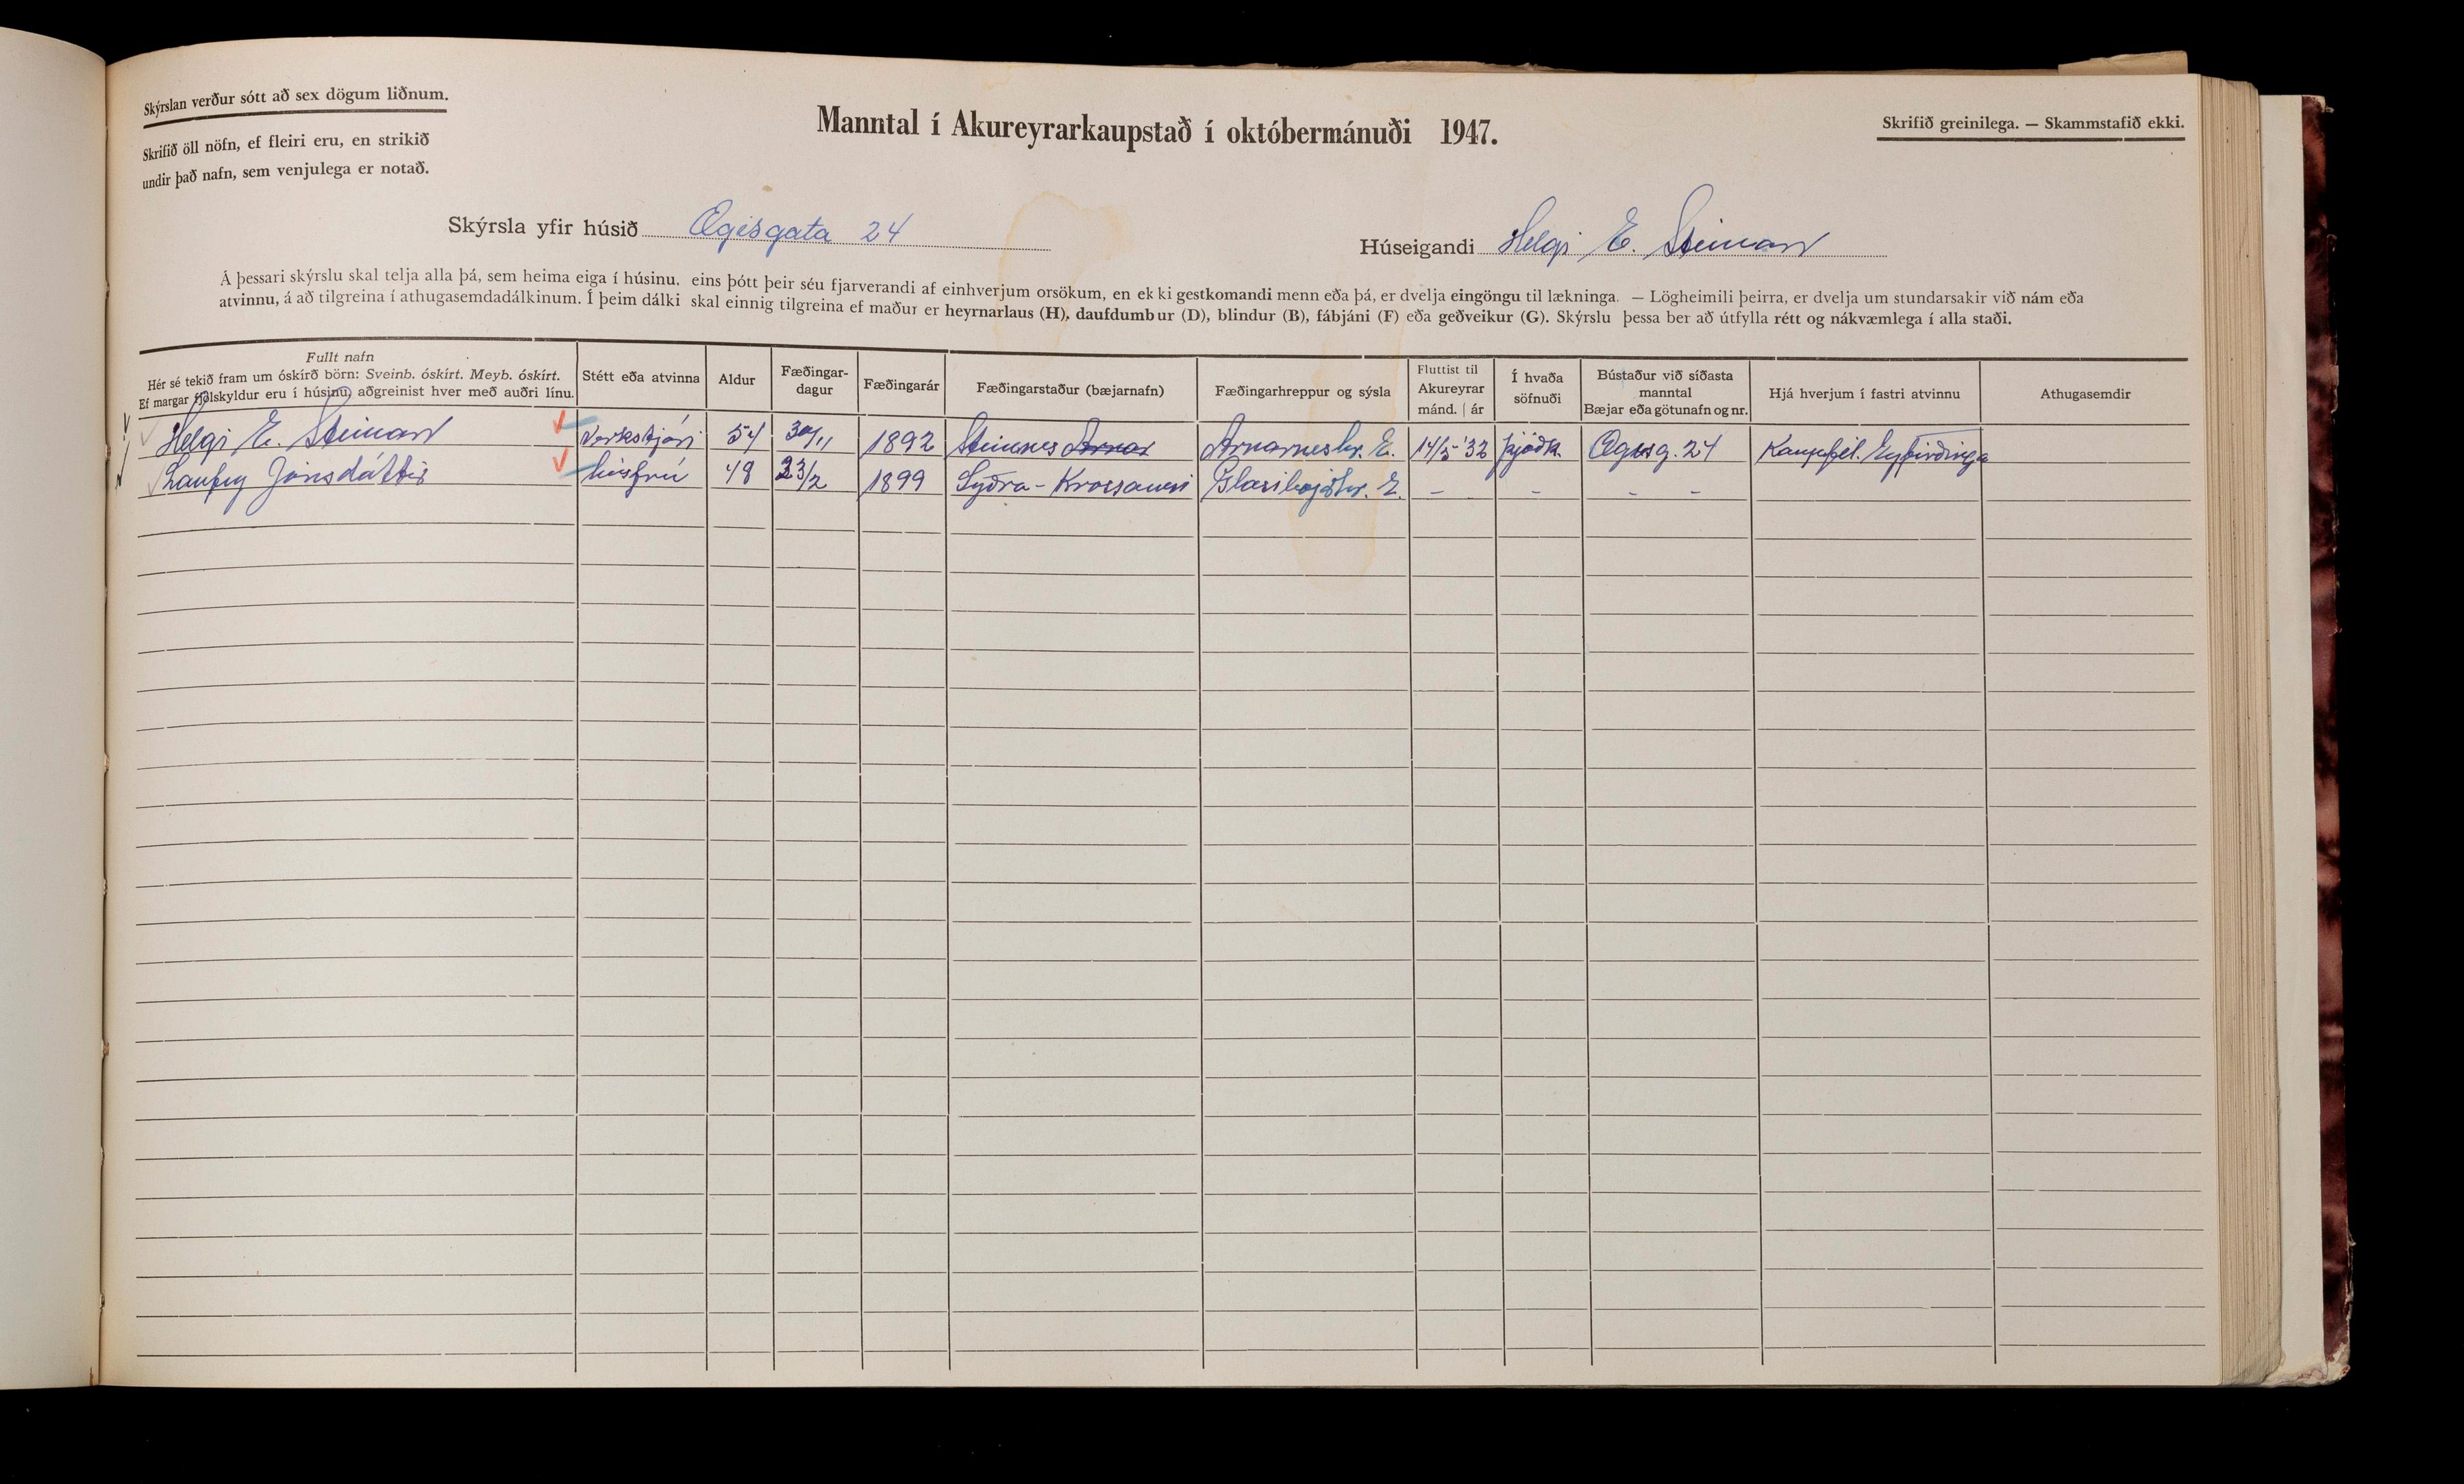 Skýrslan verður sótt að sex dögum liðnum.
Skrifið öll nöfn, ef fleiri eru, en strikið
undir það nafn, sem venjulega er notað.
Manntal í Akureyrarkaupstað í októbermánuði 1947.
Skrifið greinilega. — Skammstafið ekki.
Skýrsla yfir húsið Ægisgata 24
Húseigandi Helgi E. Steinarr
Á þessari skýrslu skal telja alla þá, sem heima eiga í húsinu, eins þótt þeir séu fjarverandi af einhverjum orsökum, en ekki gestkomandi menn eða þá, er dvelja eingöngu til lækninga. — Lögheimili þeirra, er dvelja um stundarsakir við nám eða
atvinnu, á að tilgreina í athugasemdadálkinum. Í þeim dálki skal einnig tilgreina ef maður er heyrnarlaus (H), daufdumbur (D), blindur (B), fábjáni (F) eða geðveikur (G). Skýrslu þessa ber að útfylla rétt og nákvæmlega í alla staði.
Fullt nafn
Hér sé tekið fram um óskírð börn: Sveinb. óskírt. Meyb. óskírt.
Ef margar fjölskyldur eru í húsinu, aðgreinist hver með auðri línu.
Stétt eða atvinna
Aldur
Fæðingar-
dagur
Fæðingarár
Fæðingarstaður (bæjarnafn)
Fæðingarhreppur og sýsla
Fluttist til
Akureyrar
mánd. | ár
Í hvaða
söfnuði
Bústaður við síðasta
manntal
Bæjar eða götunafn og nr.
Hjá hverjum í fastri atvinnu
Athugasemdir
Helgi E. Steinarr Verkstjóri 54 30/11 1892 Steinnes Arnar Arnarneshr. E. 14/5 '32 þjóðk. Ægisg. 24 Kaupfjel. Eyfirðinga
Laufey Jónsdóttir húsfrú 48 23/2 1899 Syðra-Krossanesi Glæsibæjarhr. E. - - - -